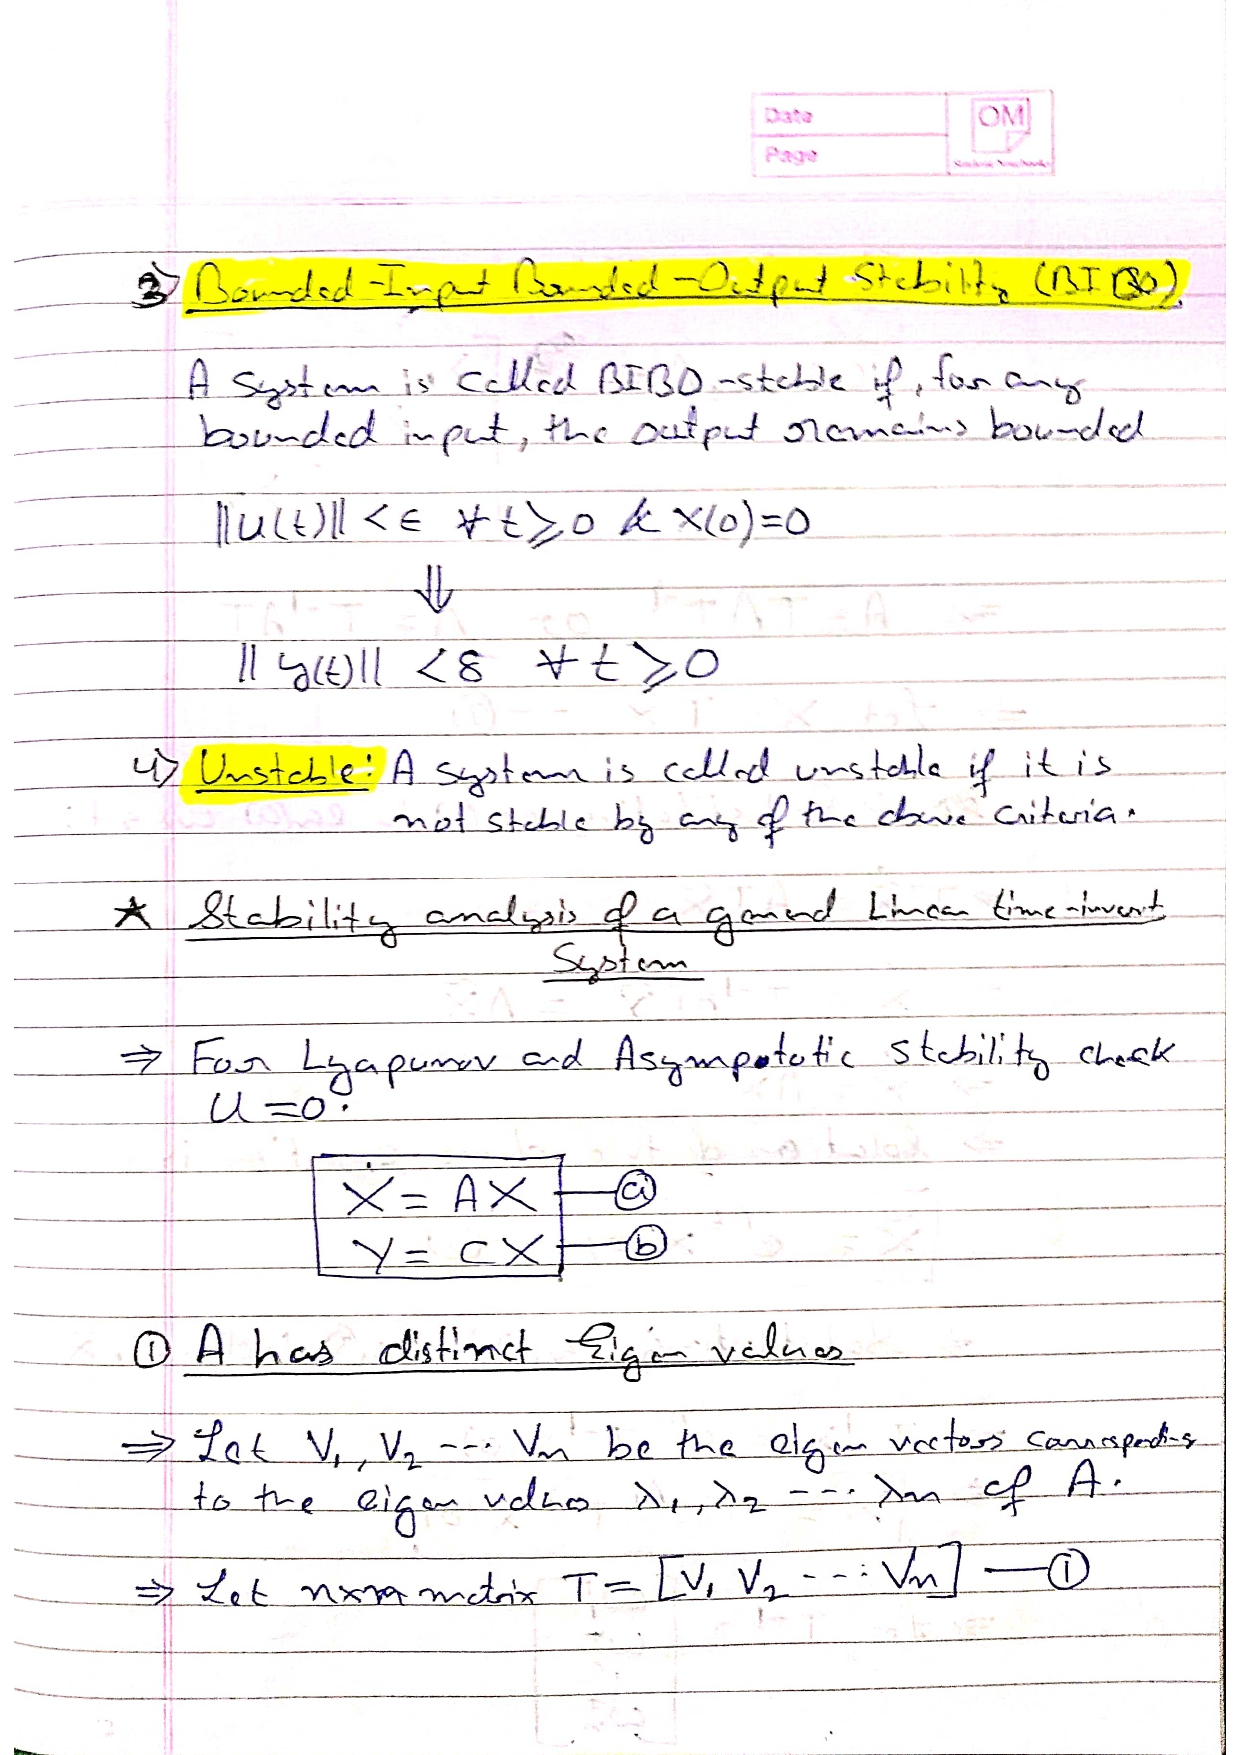 Date
OM
Page
3) Bounded-Input Bounded-Output Stability (BIBO)
A System is called BIBO-stable if, for any
bounded input, the output remains bounded
||u(t)|| < ϵ ∀ t ⩾ 0 & x(0)=0
⇓
||y(t)|| < δ ∀ t ⩾ 0
4) Unstable: A system is called unstable if it is
not stable by any of the above criteria.
★ Stability analysis of a general Linear time-invert
System
⇒ For Lyapunov and Asympototic Stability check
U=0.
Ẋ = AX — (a)
Y = CX — (b)
① A has distinct Eigen values
⇒ Let V₁, V₂ --- Vn be the eigen vectors corresponding
to the eigen values λ₁, λ₂ --- λn of A.
⇒ Let nxn matrix T = [V₁ V₂ --- Vn] — ①